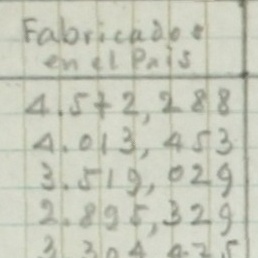 Fabricados
en el País
4.572,288
4.013,453
3.519,029
2.895,329
3.304,475